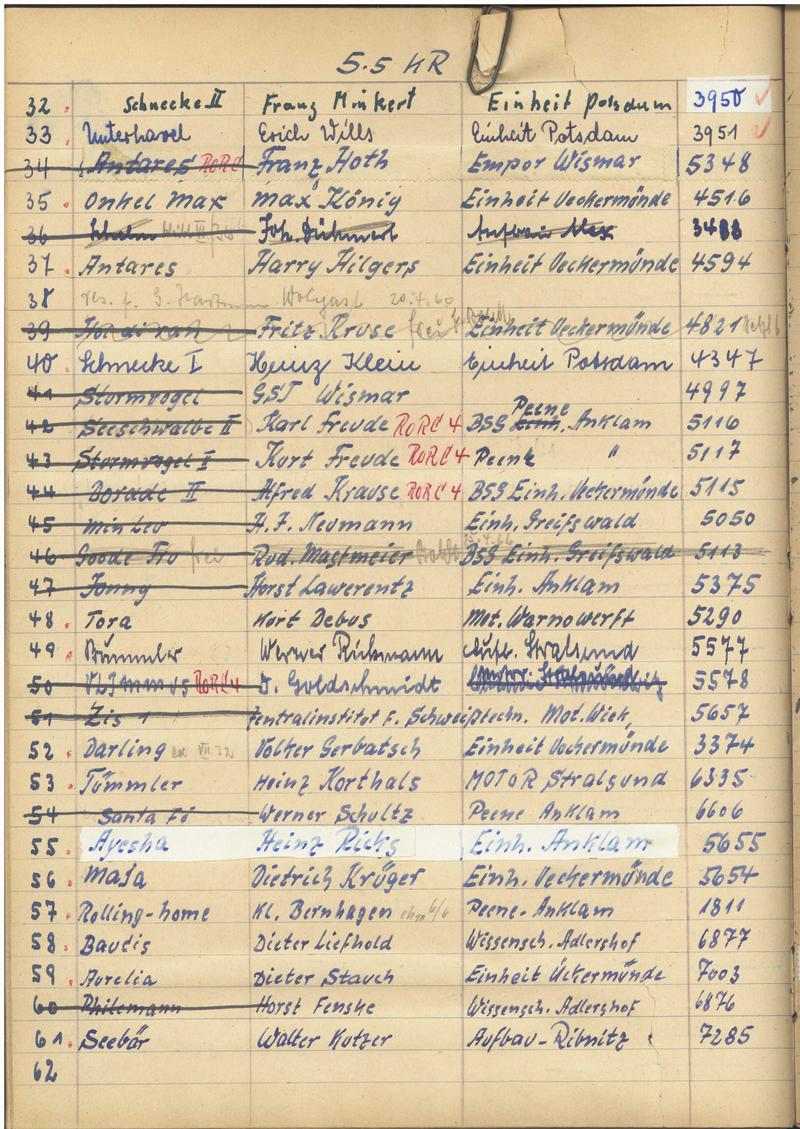 5.5 KR
32 . Schnecke II Franz Minkert Einheit Potsdam 3950 ✓
33 . Unterhavel Erich Wills Einheit Potsdam 3951 ✓
34 Antares RORC Franz Hoth Empor Wismar 5348
35 . Onkel Max Max König Einheit Ueckermünde 4516
36 Joh. 3488
37 . Antares Harry Hilgers Einheit Ueckermünde 4594
38 res. f. G. Wolgast 20.4.60
39 Fritz Kruse frei Einheit Ueckermünde 4821
40 . Schnecke I Heinz Klein Einheit Potsdam 4347
41 Sturmvogel GST Wismar 4997
42 Seeschwalbe II Karl Freude RORC 4 BSG Einh. Peene Anklam 5116
43 Sturmvogel II Kurt Freude RORC 4 Peene " 5117
44 Dorade II Alfred Krause RORC 4 BSG Einh. Ueckermünde 5115
45 Min Lev H. F. Neumann Einh. Greifswald 5050
46 Goode frei Rud. Mastmeier BSG Einh. Greifswald 5113
47 Jonny Horst Lawerentz Einh. Anklam 5375
48 . Tora Kurt Debus Mot. Warnowerft 5290
49 . Bummler Werner Rickmann Aufb. Stralsund 5577
50 RORC 4 D. Goldschmidt 5578
51 Zis 1 Zentralinstitut f. Schweißtechn. Mot. Wiek, 5657
52 . Darling ex VII.32 Volker Gerbatsch Einheit Ueckermünde 3374
53 . Tümmler Heinz Korthals MOTOR Stralsund 6335
54 Santa Fé Werner Schultz Peene Anklam 6606
55 . Ayesha Heinz Ricks Einh. Anklam 5655
56 . Maja Dietrich Krüger Einh. Ueckermünde 5654
57 . Rolling-home Kl. Bernhagen Peene-Anklam 1811
58 . Baucis Dieter Liefhold Wissensch. Adlershof 6877
59 . Aurelia Dieter Stauch Einheit Ückermünde 7003
60 Philemann Horst Fenske Wissensch. Adlershof 6876
61 . Seebär Walter Kutzer Aufbau-Ribnitz 7285
62